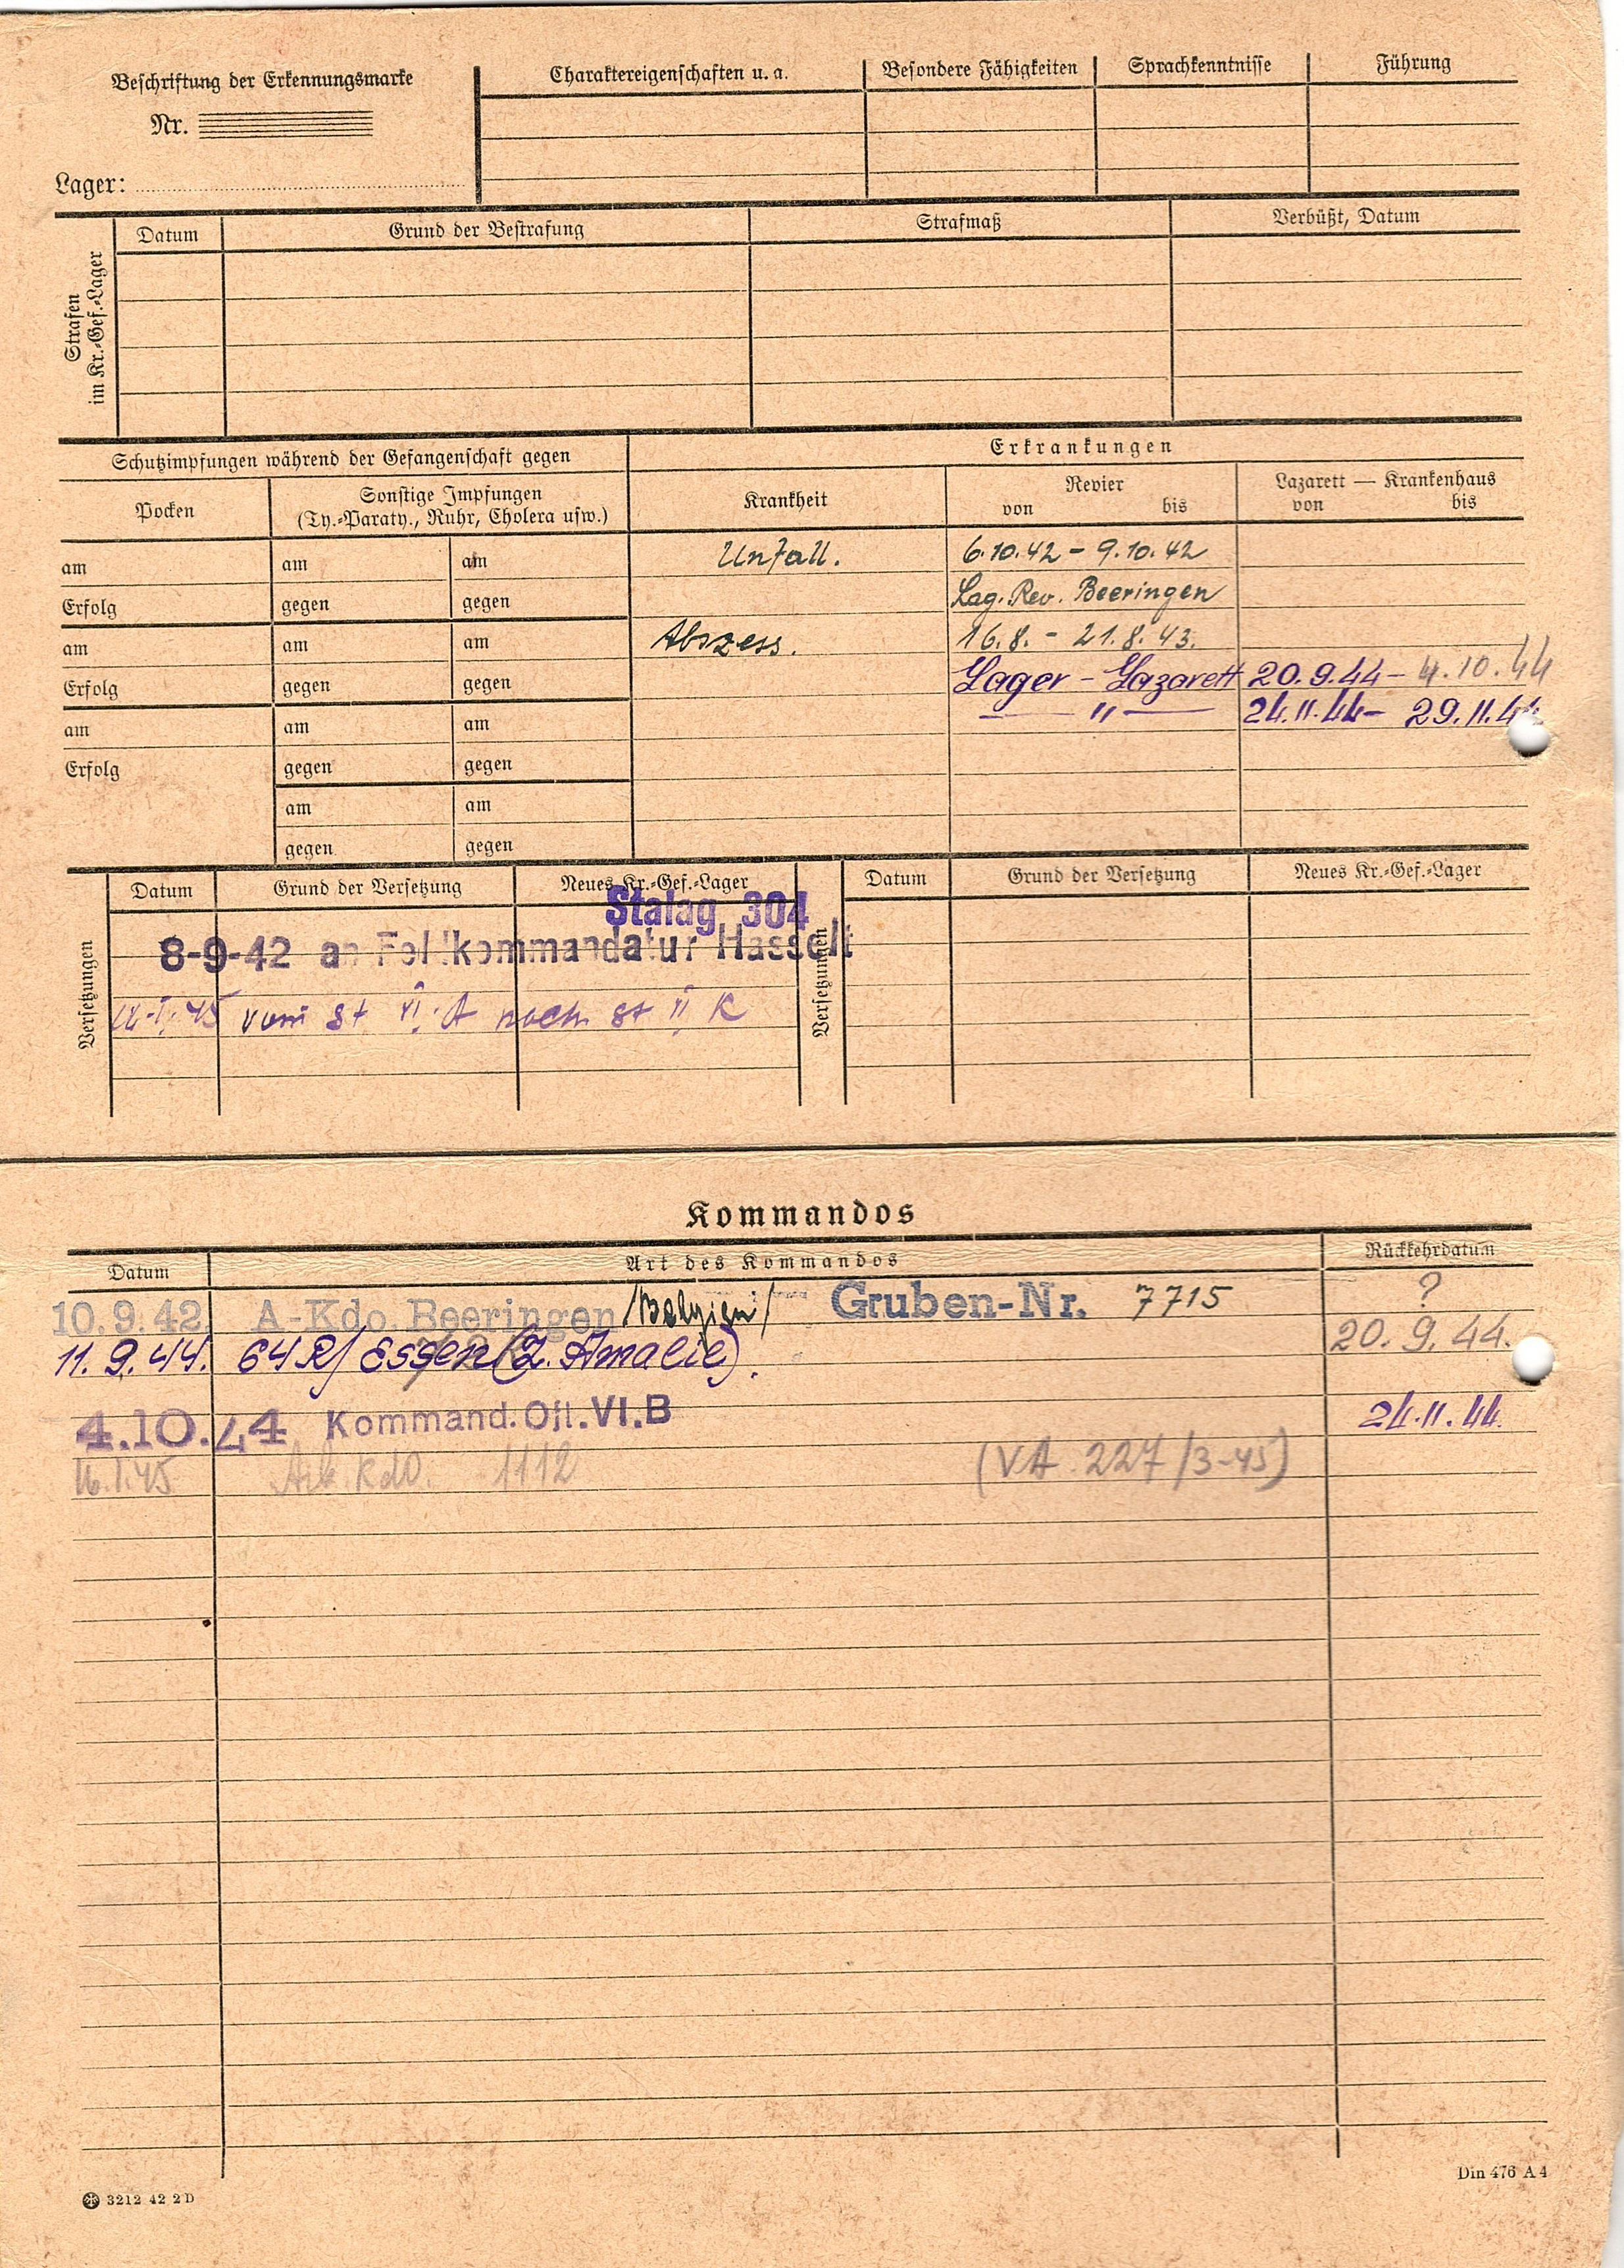 Beschriftung der Erkennungsmarke
Nr.
Lager:
Charaktereigenschaften u. a.
Besondere Fähigkeiten
Sprachkenntnisse
Führung
Strafen
im Kr.-Gef.-Lager
Datum
Grund der Bestrafung
Strafmaß
Verbüßt, Datum
Schutzimpfungen während der Gefangenschaft gegen
Erkrankungen
Pocken
Sonstige Impfungen
(Ty.-Paraty., Ruhr, Cholera usw.)
Krankheit
Revier
von bis
Lazarett — Krankenhaus
von bis
am am am Unfall. 6.10.42 - 9.10.42
Erfolg gegen gegen Lag. Rev. Beeringen
am am am Abszess. 16.8. - 21.8.43.
Erfolg gegen gegen Lager - Lazarett 20.9.44 - 4.10.44
am am am — " — 24.11.44 - 29.11.44
Erfolg gegen gegen
am am
gegen gegen
Versetzungen
Datum Grund der Versetzung Neues Kr.-Gef.-Lager
Stalag 304
8-9-42 an Feldkommandatur Hasselt
vom St VI A nach St VI K
Versetzungen
Datum Grund der Versetzung Neues Kr.-Gef.-Lager
Kommandos
Datum Art des Kommandos Rückkehrdatum
10.9.42 A-Kdo. Beeringen /Belgien/ Gruben-Nr. 7715 ?
11.9.44. 64 R/ Essen (Z. Amalie). 20.9.44.
4.10.44 Kommand. Ofl. VI.B 24.11.44.
16.1.45 Arb. Kdo. 1112 (VA 227/3-45)
3212 42 2 D
Din 476 A 4